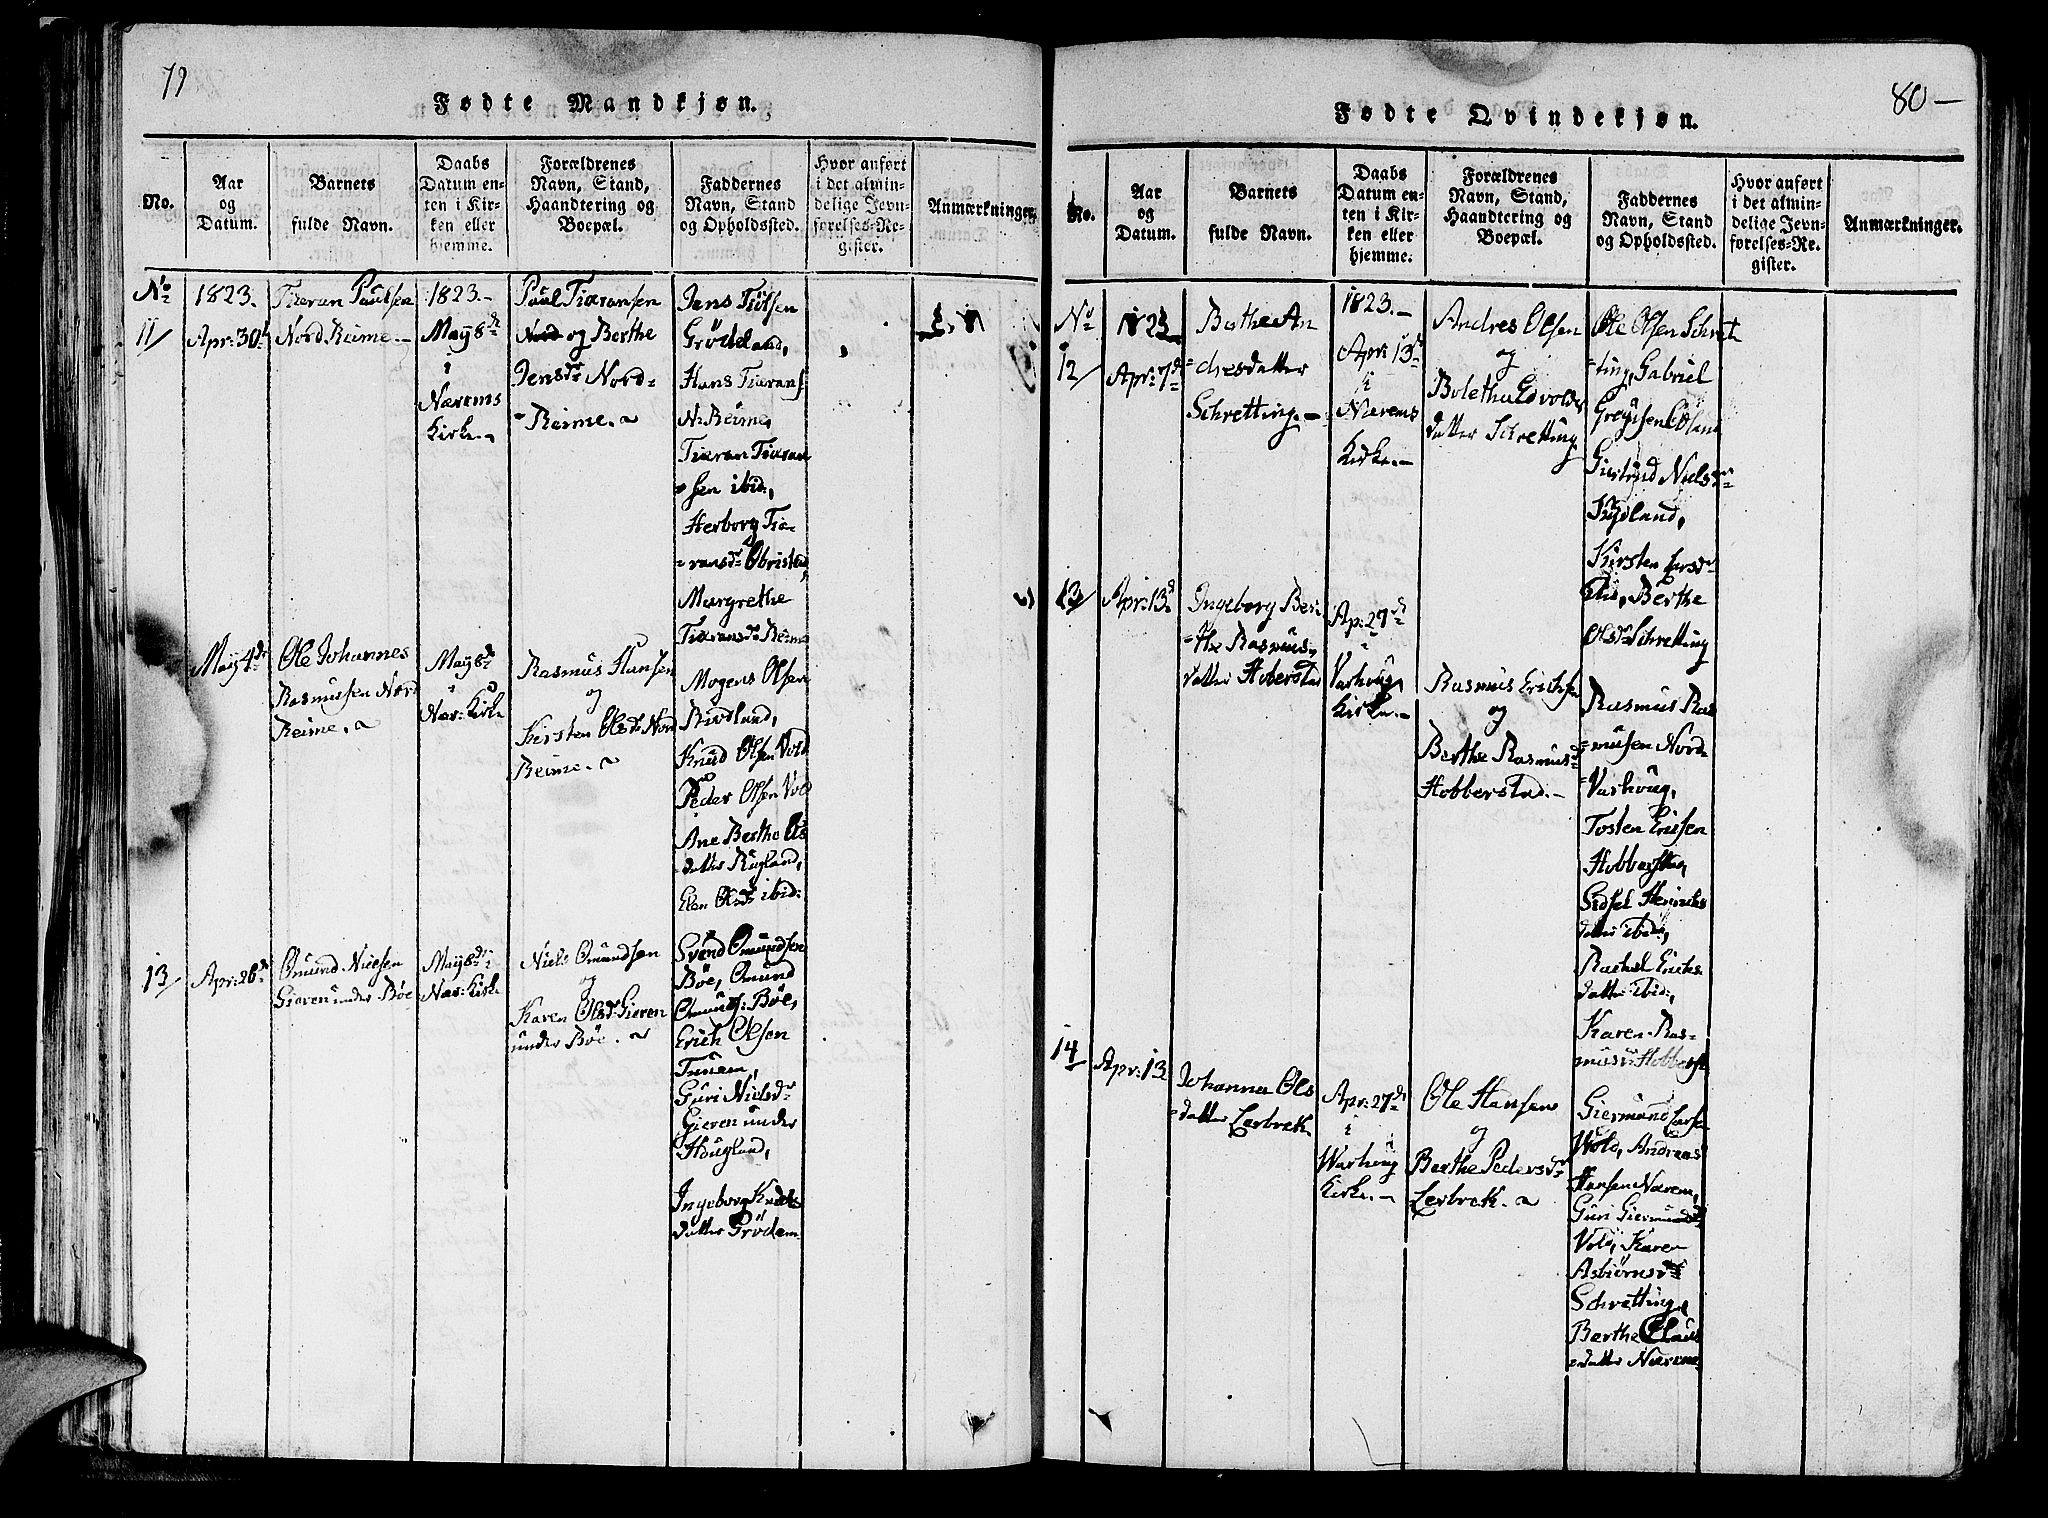 79
Fødte Mandkjøn.
No.
Aar
og
Datum.
Barnets
fulde Navn.
Daabs
Datum en-
ten i Kir-
ken eller
hjemme.
Forældrenes
Navn, Stand,
Haandtering og
Boepæl.
Faddernes
Navn, Stand
og Opholdssted.
Hvor anført
i det almin-
delige Jevn-
førelses-Re-
gister.
Anmærkninger.
No
11/
1823.
Apr: 30te
Tiæran Paulsen
Nord Reime.
1823.-
May 8de
i
Nærems
Kirke.
Paul Tiæransen
og Berthe
Jensdr Nord-
-Reime.
Jens Tiölsen
Grödeland,
Hans Tiærans
N: Reime,
Tiæran Tiæran
-sen ibid,
Herborg Tiæ-
-ransdr Obristad,
Margrethe
Tiæransdr Reime
May 4de
Ole Johannes
Rasmussen Nord
Reime.
May 8de
i
Nær: Kirk
Rasmus Hansen
og
Kirsten Olsdr Nord
Reime.
Mogens Olsen
Birdland,
Knud Olsen Vold
Peder Olsen Vold
Ane Berthe Ols
datter Rugland,
Elen Olsdr ibid:
13/
Apr: 26de
Omund Nielsen
Gieren under Böe
May 8de i
Nær: Kirk
Niels Omundsen
og
Karen Olsdr Gieren
under Böe.
Svend Omundsen
Böe, Omund
Omunds: Böe,
Erich Olsen
Tunem,
Guri Nielsdr
Gieren under
Hougland,
Ingeborg Knuds
datter Grödem
80-
Fødte Qvindekjøn.
No.
Aar
og
Datum.
Barnets
fulde Navn.
Daabs
Datum en-
ten i Kir-
ken eller
hjemme.
Forældrenes
Navn, Stand,
Haandtering og
Boepæl.
Faddernes
Navn, Stand
og Opholdssted.
Hvor anført
i det almin-
delige Jevn-
førelses-Re-
gister.
Anmærkninger.
No
12/
1823
Apr: 7de
Berthe An
-dresdatter
Schretting.-
1823.-
Apr: 13de
i
Nærems
Kirke.-
Andres Olsen
og
Bolethe Edvolds
datter Schretting
Ole Olsen Schret
-ting, Gabriel
Giertrud Nielsdr
Kirsten Larsdr
Berthe
Olsdr Schretting
13/
Apr: 13de
Ingeborg Ber
-the Rasmus
datter Hoberstad
Ap: 27de
i
Varhoug
Kirke.-
Rasmus Erichsen
og
Berthe Rasmusdr
Hobberstad.-
Rasmus Ras
-musen Nord
-Varhoug,
Tosten Ericsen
Hobberstad,
Sidsel Henrichs
datter ibid,
Rachel Erichs
datter ibid:,
Karen Ras-
musdr Hobberst
14
Apr: 13
Johanna Ols
-datter Lerbrek.
Apr: 27de
i
Warhoug
Kirke.-
Ole Hansen
og
Berthe Pedersdr
Lerbrek.
Giermund Larsen
Wold, Andreas
Hansen Nærem,
Guri Giermundsdr
Vold, Karen
Asbiörnsdr
Schretting,
Berthe Claus
-datter Nærem